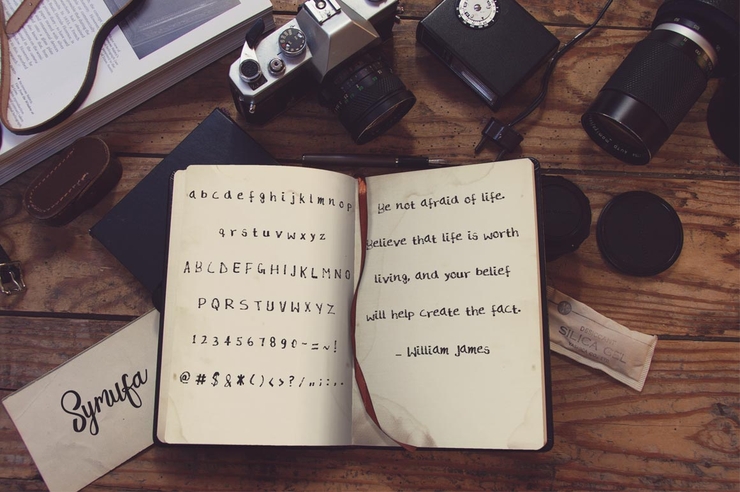 abcdefghijklmnop
qrstuvwxyz
ABCDEFGHIJKLMNO
PQRSTUVWXYZ
1234567890-=~!
@#$&*()<>?/,,;:..
Be not afraid of life.
Believe that life is worth
living, and your belief
will help create the fact.
- William James
Symufa
SILICA GEL